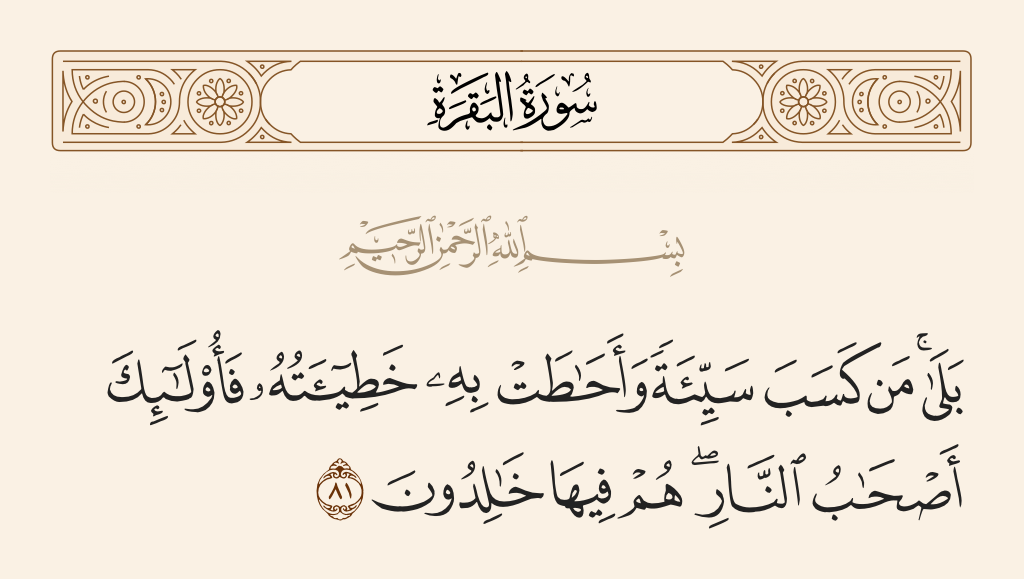 سُورَةُ البَقَرَةِ
بِسْمِ ٱللَّهِ ٱلرَّحْمَٰنِ ٱلرَّحِيمِ
بَلَىٰۚ مَن كَسَبَ سَيِّئَةً وَأَحَٰطَتْ بِهِۦ خَطِيٓـَٔتُهُۥ فَأُو۟لَٰٓئِكَ
أَصْحَٰبُ ٱلنَّارِۖ هُمْ فِيهَا خَٰلِدُونَ ٨١